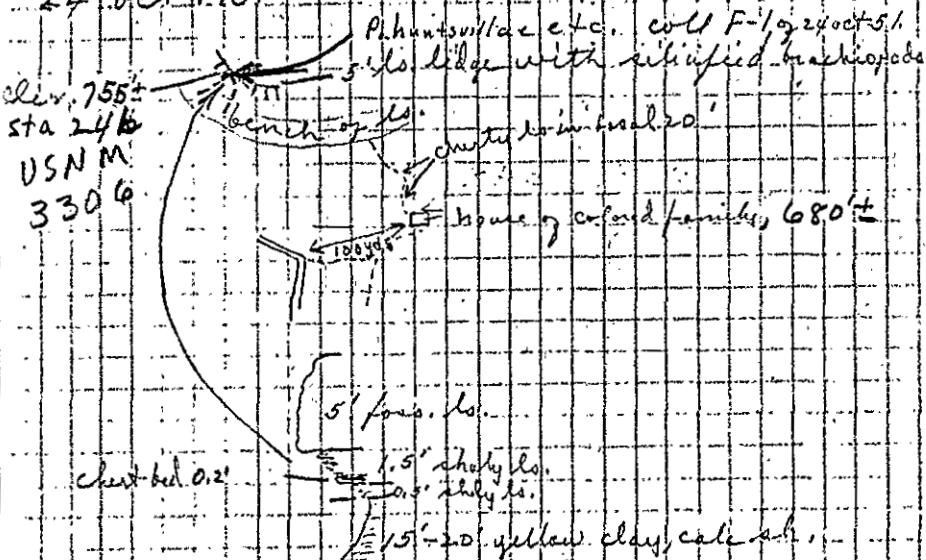 Pl. huntsvillae etc. coll F-1 of 24 oct-51
5' ls ledge with silicified brachiopods
elev. 755'±
sta 246
USNM
3306
bench of ls.
cherty ls in basal 20'
house of colored family, 680'±
100 yds
5' foss. ls.
1.5' shaly ls.
chert bed 0.2'
0.5' shly ls.
15'-20' yellow clay, calc sh.